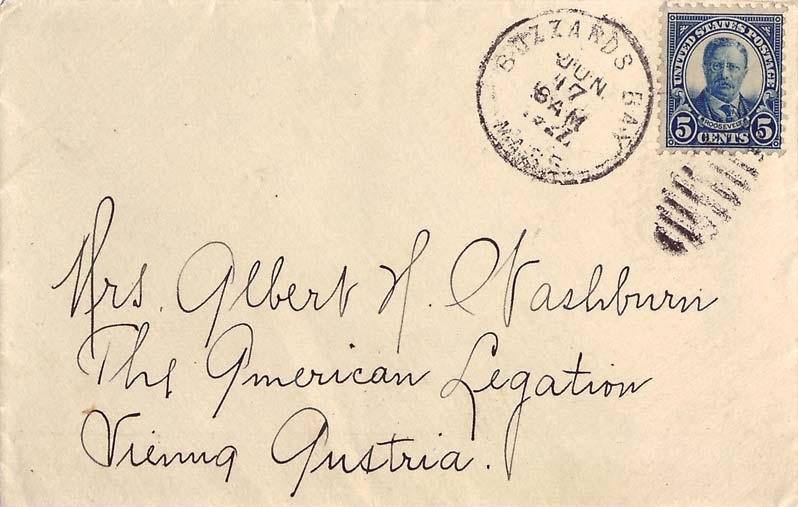 BUZZARDS BAY
JUN
17
8 AM
MASS.
UNITED STATES POSTAGE
ROOSEVELT
5 CENTS 5
Mrs. Albert H. Washburn
The American Legation
Vienna Austria.